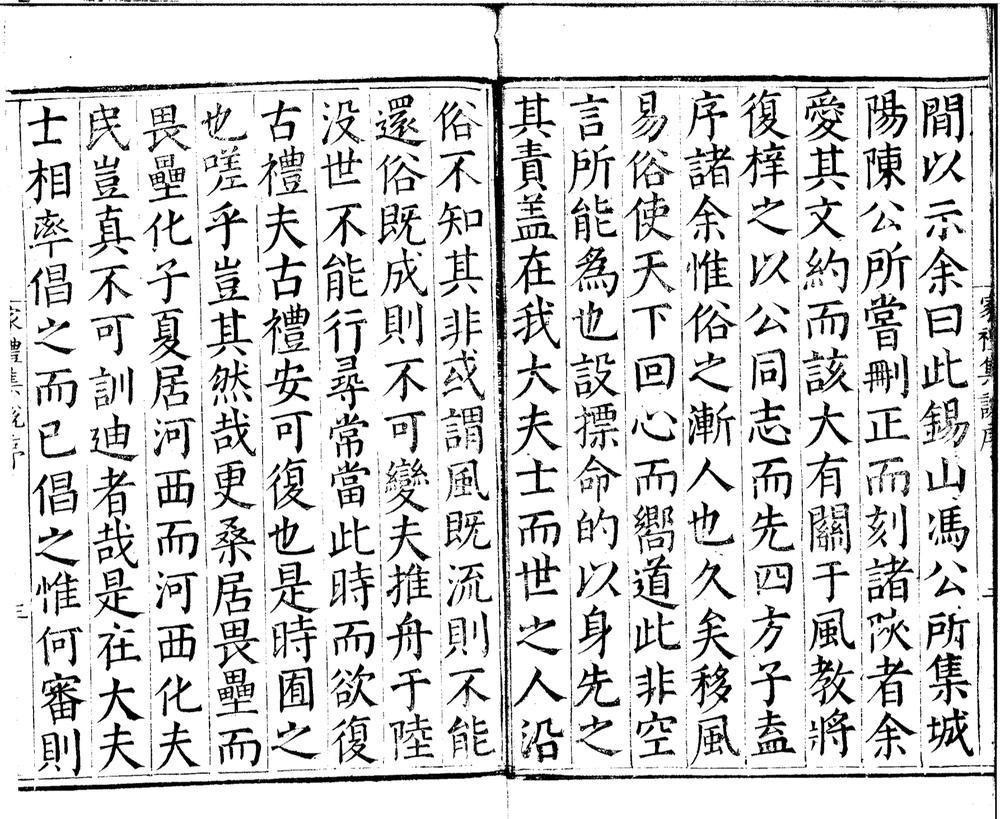 間以示余曰此錫山馮公所集城
陽陳公所嘗刪正而刻諸陜者余
愛其文約而該大有關于風教將
復梓之以公同志而先四方子盍
序諸余惟俗之漸人也久矣移風
易俗使天下回心而嚮道此非空
言所能為也設摽命的以身先之
其責盖在我大夫士而世之人沿
俗不知其非或謂風既流則不能
還俗既成則不可變夫推舟于陸
没世不能行尋常當此時而欲復
古禮夫古禮安可復也是時囿之
也嗟乎豈其然哉更桑居畏壘而
畏壘化子夏居河西而河西化夫
民豈真不可訓迪者哉是在大夫
士相率倡之而已倡之惟何審則
家禮集說序
三